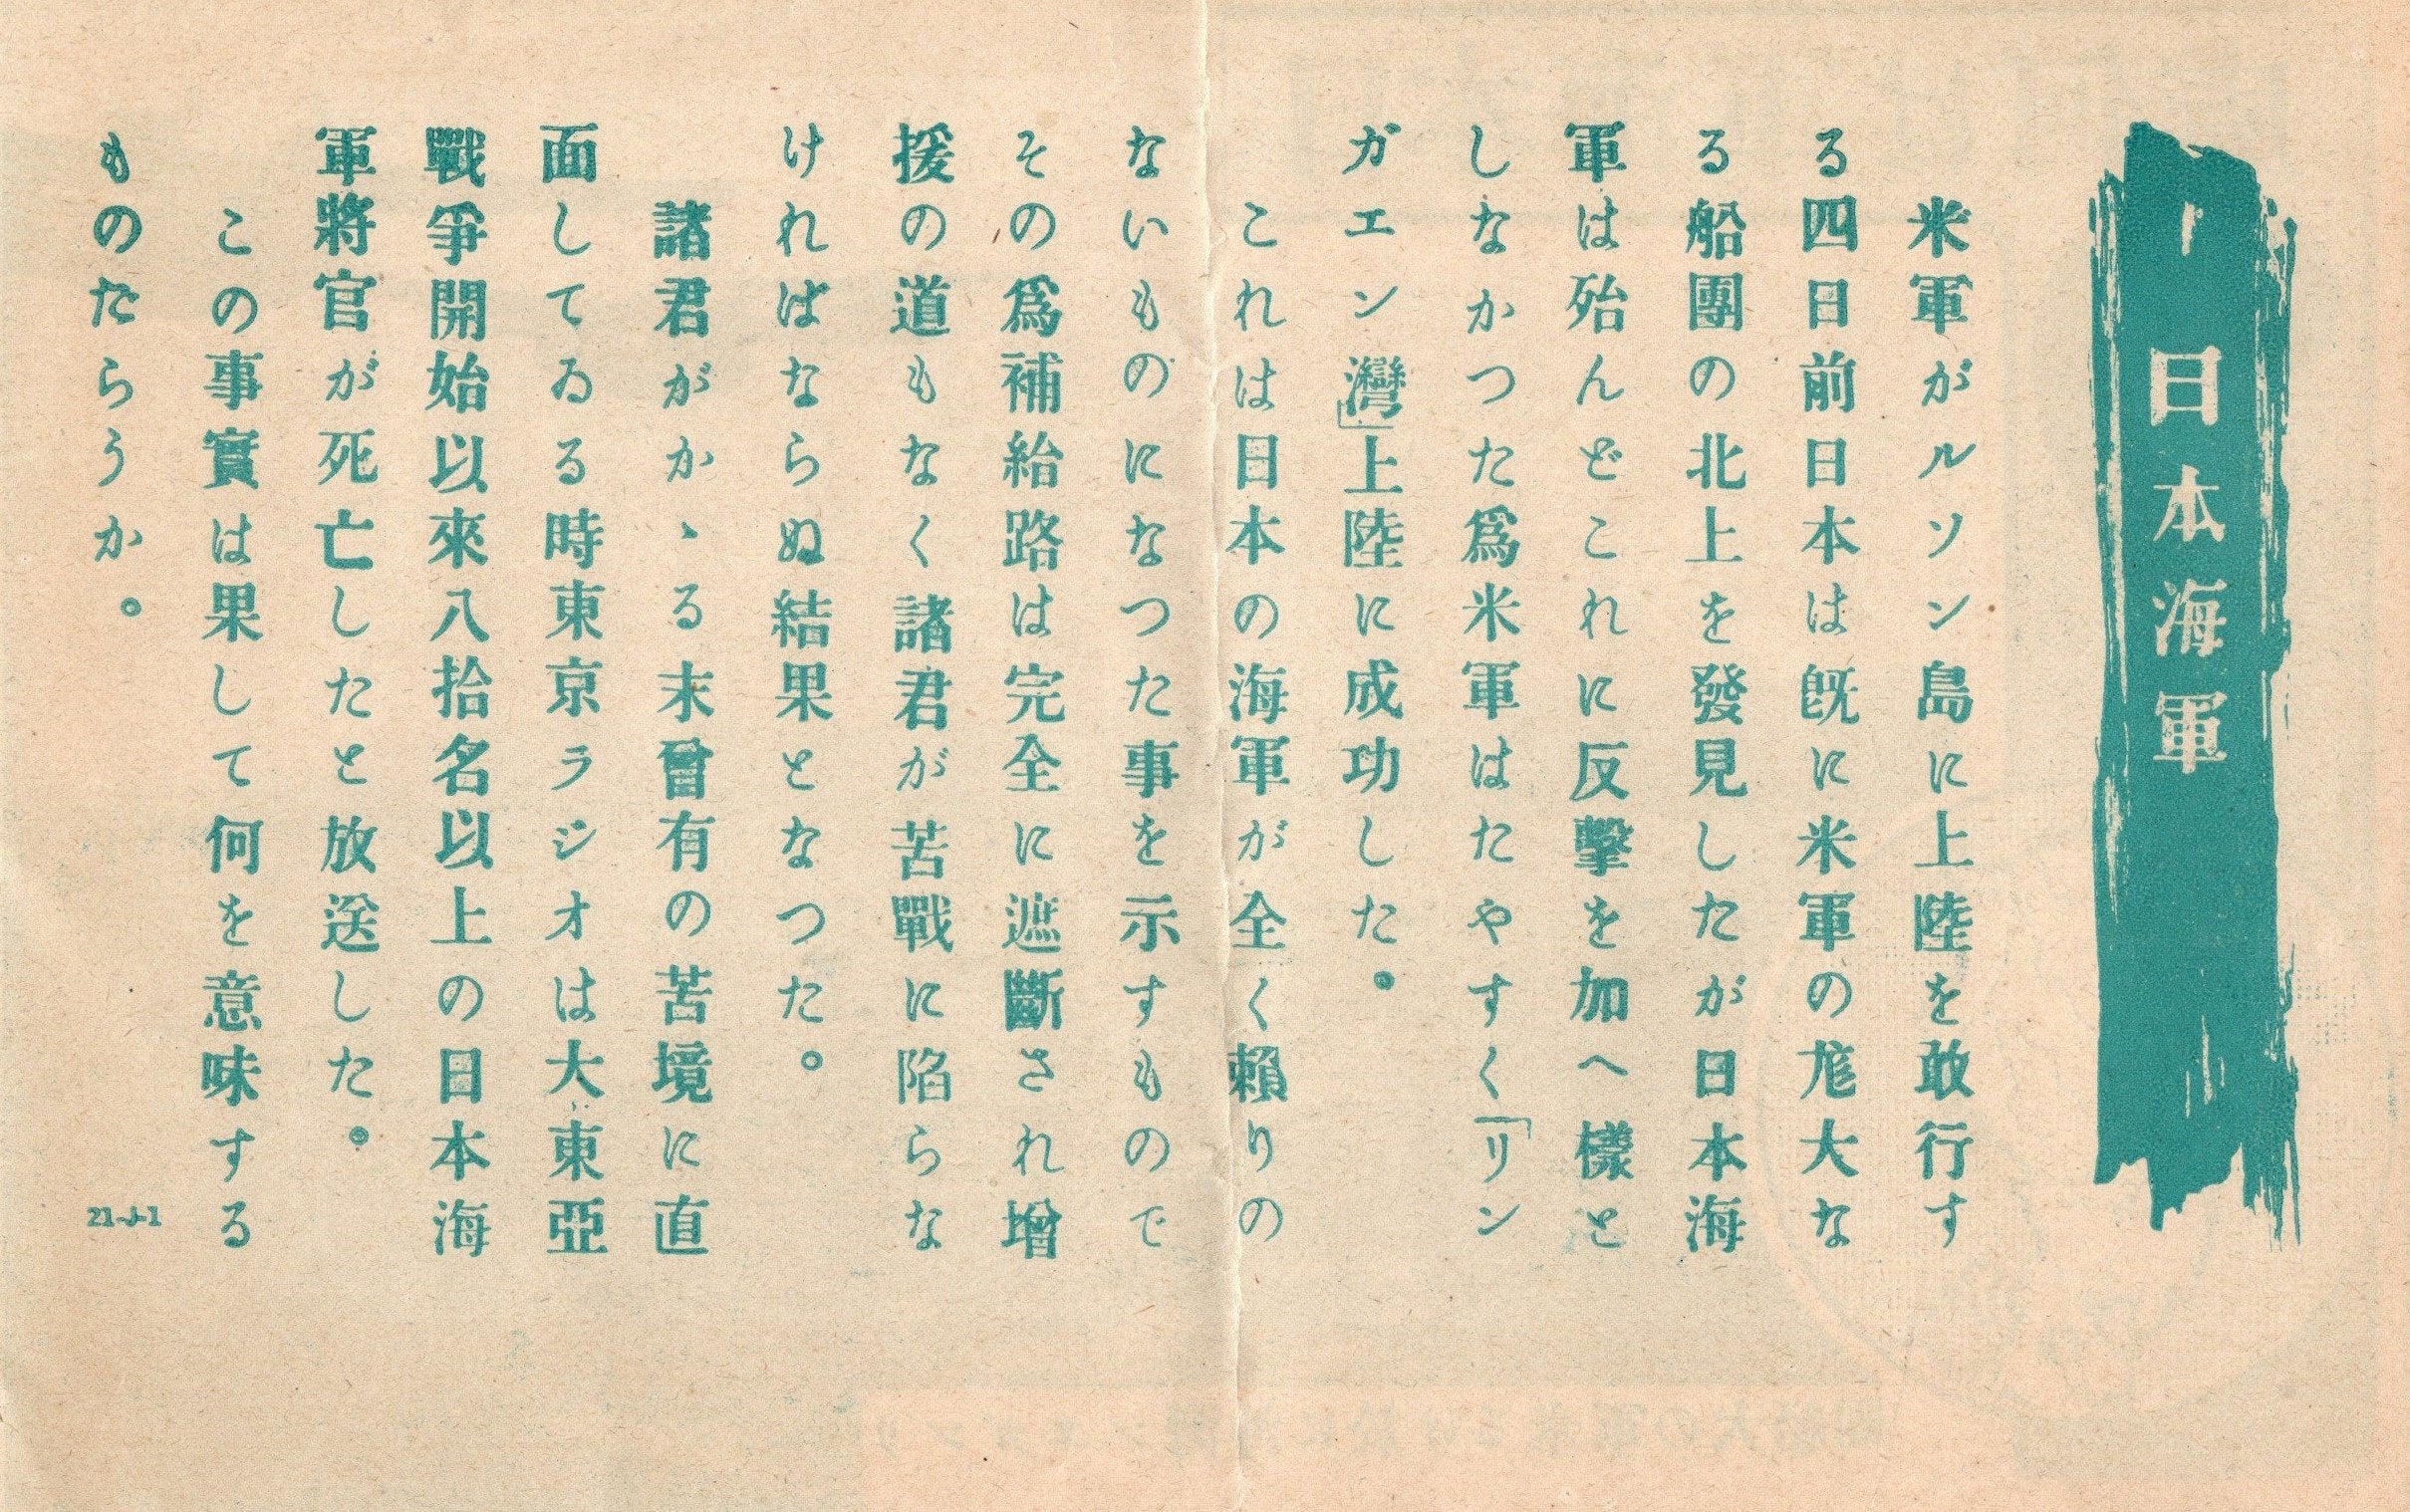 日本海軍
米軍がルソン島に上陸を敢行す
る四日前日本は既に米軍の尨大な
る船團の北上を發見したが日本海
軍は殆んどこれに反擊を加へ樣と
しなかつた爲米軍はたやすく「リン
ガエン灣」上陸に成功した。
これは日本の海軍が全く賴りの
ないものになつた事を示すもので
その爲補給路は完全に遮斷され增
援の道もなく諸君が苦戰に陷らな
ければならぬ結果となつた。
諸君がかゝる末曾有の苦境に直
面してゐる時東京ラジオは大東亞
戰爭開始以來八拾名以上の日本海
軍將官が死亡したと放送した。
この事實は果して何を意味する
ものたらうか。
21-J-1